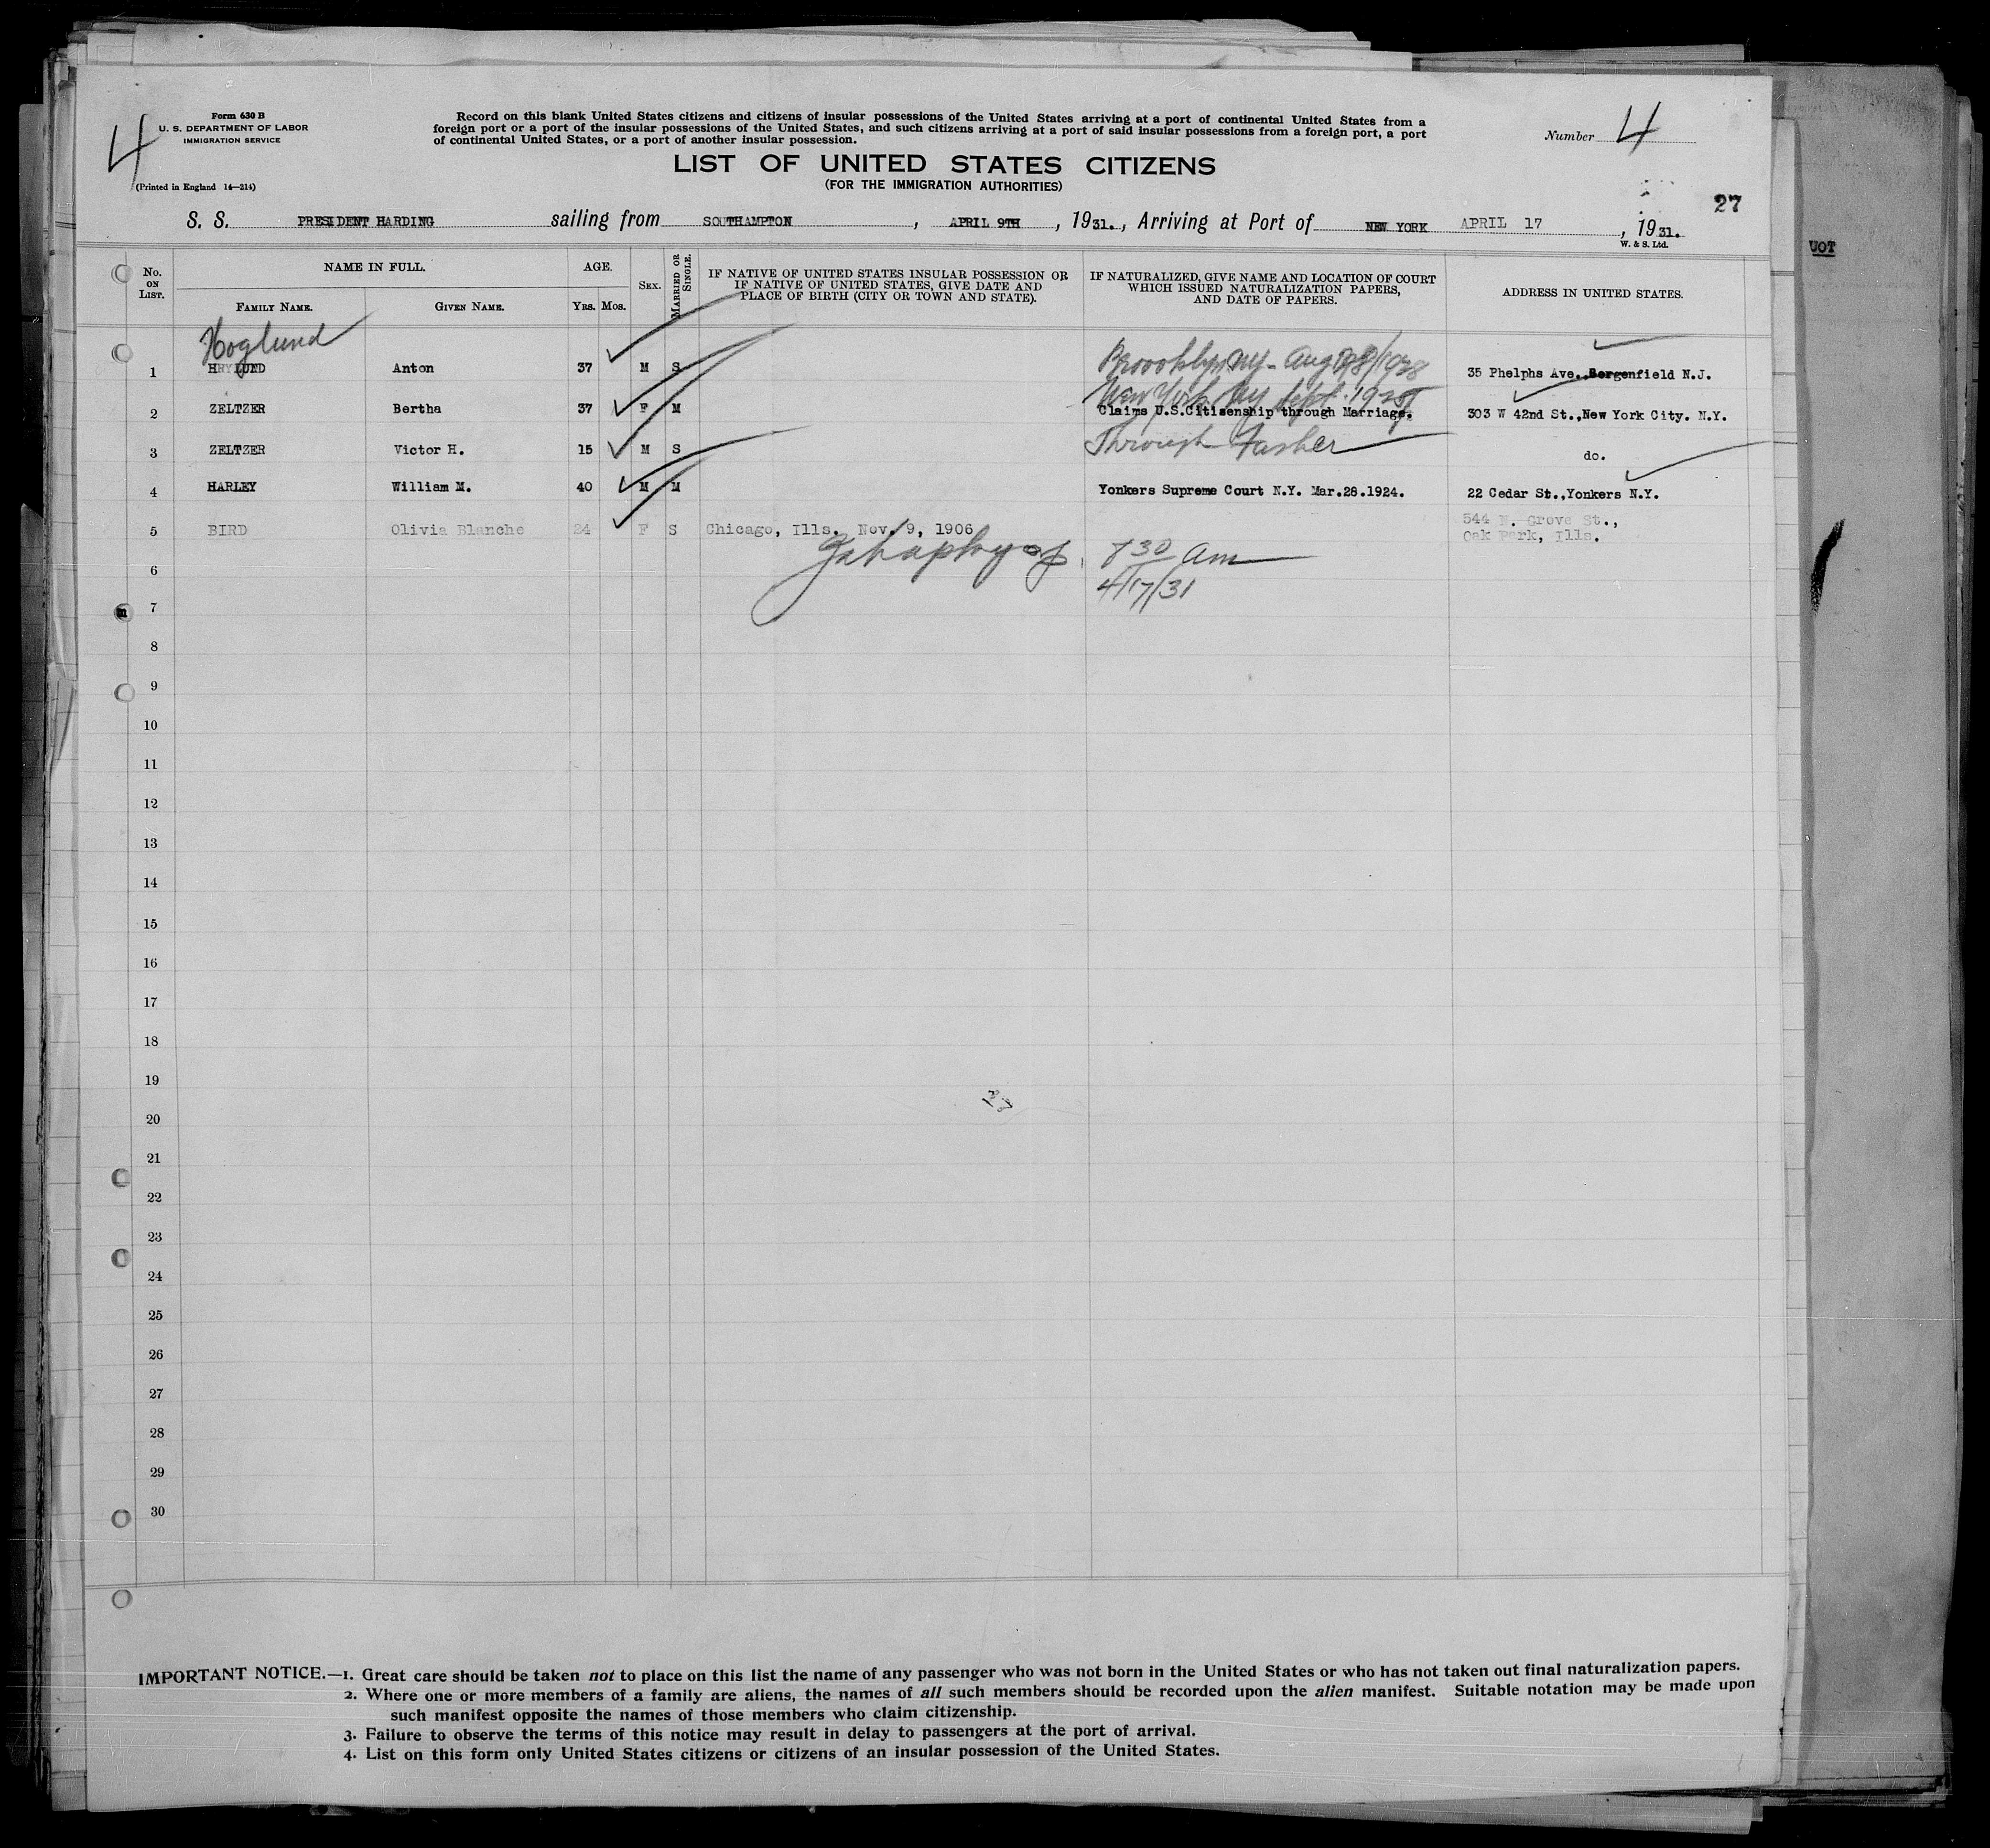 4
Form 630 B
U. S. DEPARTMENT OF LABOR
IMMIGRATION SERVICE
(Printed in England 14—214)
Record on this blank United States citizens and citizens of insular possessions of the United States arriving at a port of continental United States from a
foreign port or a port of the insular possessions of the United States, and such citizens arriving at a port of said insular possessions from a foreign port, a port
of continental United States, or a port of another insular possession.
LIST OF UNITED STATES CITIZENS
(FOR THE IMMIGRATION AUTHORITIES)
Number 4
27
S. S. PRESIDENT HARDING sailing from SOUTHAMPTON, APRIL 9TH, 1931., Arriving at Port of NEW YORK APRIL 17, 1931.
W. & S. Ltd.
UOT
No. ON LIST. NAME IN FULL. AGE. SEX. MARRIED OR SINGLE. IF NATIVE OF UNITED STATES INSULAR POSSESSION OR IF NATIVE OF UNITED STATES, GIVE DATE AND PLACE OF BIRTH (CITY OR TOWN AND STATE). IF NATURALIZED, GIVE NAME AND LOCATION OF COURT WHICH ISSUED NATURALIZATION PAPERS, AND DATE OF PAPERS. ADDRESS IN UNITED STATES.
FAMILY NAME. GIVEN NAME. YRS. MOS.
Hoglund
1 LUND Anton 37 M S Brooklyn NY - Aug 1928 35 Phelphs Ave., Bergenfield N.J.
New York NY Sept.
2 ZELTZER Bertha 37 F M Claims U.S.Citizenship through Marriage. 303 W 42nd St.,New York City. N.Y.
3 ZELTZER Victor H. 15 M S Through Father do.
4 HARLEY William M. 40 M M Yonkers Supreme Court N.Y. Mar.28.1924. 22 Cedar St.,Yonkers N.Y.
5 BIRD Olivia Blanche 24 F S Chicago, Ills. Nov. 9, 1906 544 N. Grove St.,
Oak Park, Ills.
6 7 30 am
4/17/31
7
8
9
10
11
12
13
14
15
16
17
18
19
20
21
22
23
24
25
26
27
28
29
30
IMPORTANT NOTICE.—1. Great care should be taken not to place on this list the name of any passenger who was not born in the United States or who has not taken out final naturalization papers.
2. Where one or more members of a family are aliens, the names of all such members should be recorded upon the alien manifest. Suitable notation may be made upon
such manifest opposite the names of those members who claim citizenship.
3. Failure to observe the terms of this notice may result in delay to passengers at the port of arrival.
4. List on this form only United States citizens or citizens of an insular possession of the United States.